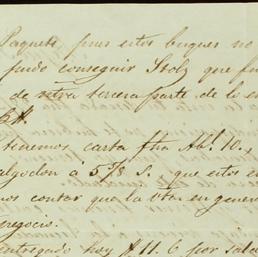 Paquete pues estos buques no
pudo conseguir Stolz que fu
de otra tercera parte de lo en
tenemos carta fha Ab.l 10.,
algodon á 5 7/8 S. que estos e
nos contar que la vta. en gener
negocio.
entregado hoy $ 11. 6 por sald